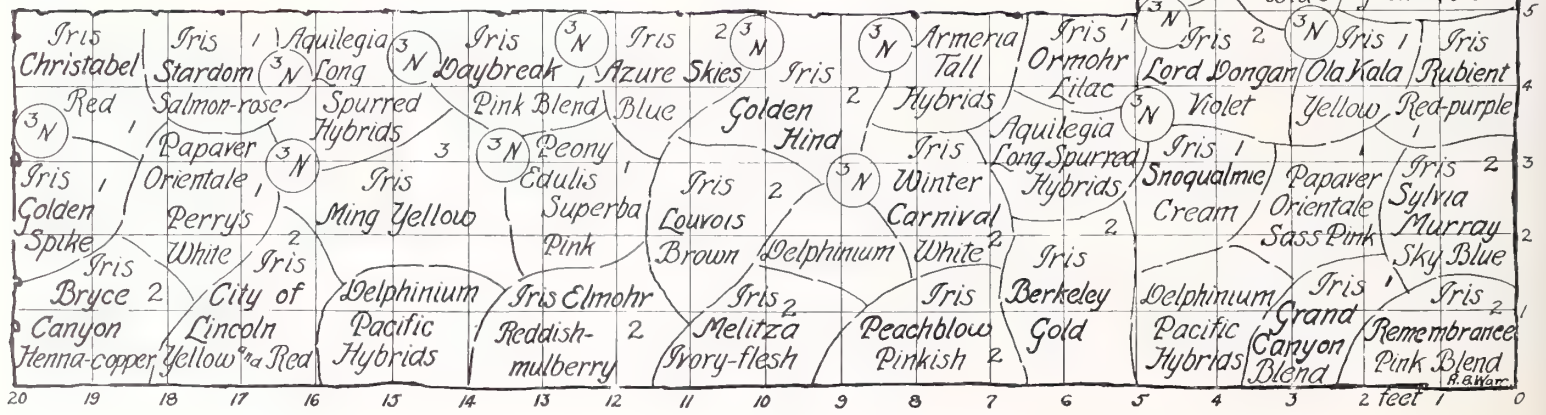 Iris
Christabel
Red
1
3
N
Iris 1
Stardom
Salmon-rose
3
N
Aquilegia
Long
Spurred
Hybrids
3
3
N
Iris
Daybreak
Pink Blend
1
3
N
Iris 2
Azure Skies
Blue
3
N
Iris
Golden 2
Hind
3
N
Armeria
Tall
Hybrids
Iris 1
Ormohr
Lilac
3
N
Iris 2
Lord Dongan
Violet
3
N
Iris 1
Ola Kala
Yellow
Iris
Rubient
Red-purple
1
3
N
5
4
3
2
1
Iris 1
Golden
Spike
Papaver
Orientale
Perry's 1
White
3
N
Iris
Ming Yellow
2
3
N
Peony
Edulis 1
Superba
Pink
Iris 2
Louvois
Brown
Delphinium
3
N
Iris
Winter
Carnival
White 2
Aquilegia
Long Spurred
Hybrids
2
Iris 1
Snoqualmie
Cream
Papaver
Orientale
Sass Pink
Iris 2
Sylvia
Murray
Sky Blue
Iris
Bryce 2
Canyon
Henna-copper
Iris
City of
Lincoln
Yellow and Red
Delphinium
Pacific
Hybrids
Iris Elmohr
Reddish- 2
mulberry
Iris 2
Melitza
Ivory-flesh
Iris
Peachblow
Pinkish 2
Iris
Berkeley
Gold
Delphinium
Pacific
Hybrids
Iris 1
Grand
Canyon
Blend
Iris 2
Remembrance
Pink Blend
20 19 18 17 16 15 14 13 12 11 10 9 8 7 6 5 4 3 2 feet 1 0